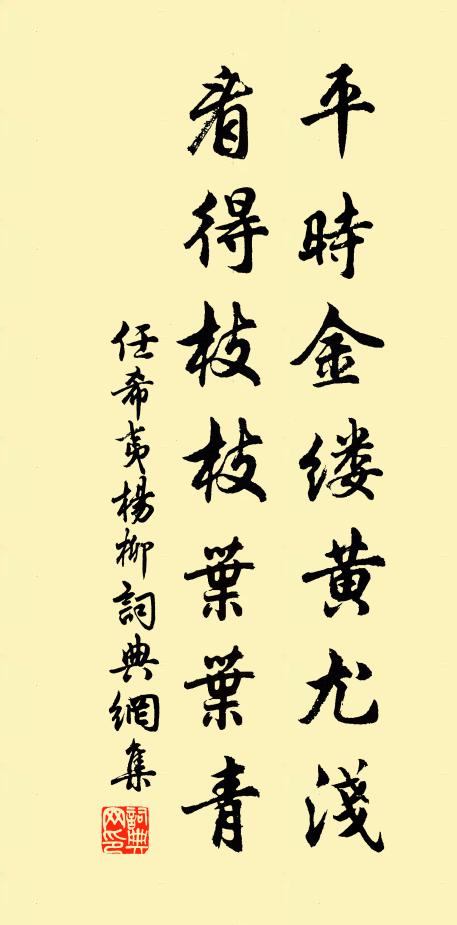 平時金缕黄尤淺
看得枝枝葉葉青
任希夷楊柳詞典網集
詞典网印